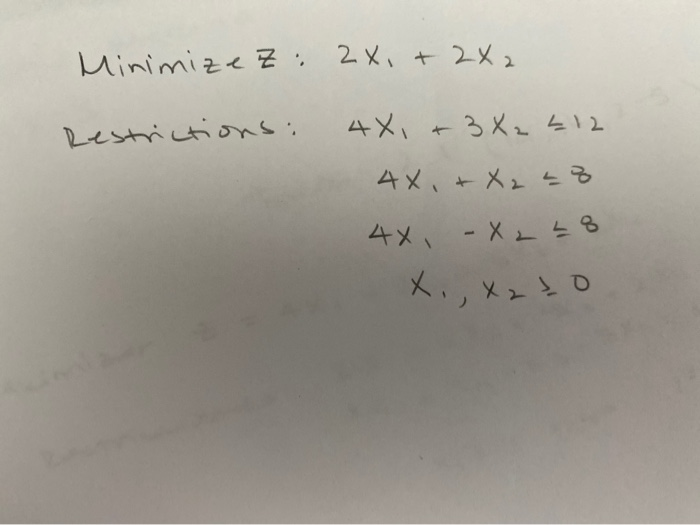 Minimize Z: 2X₁ + 2X₂
Restrictions: 4X₁ + 3X₂ ≤ 12
4X₁ + X₂ ≤ 8
4X₁ - X₂ ≤ 8
X₁, X₂ ≥ 0